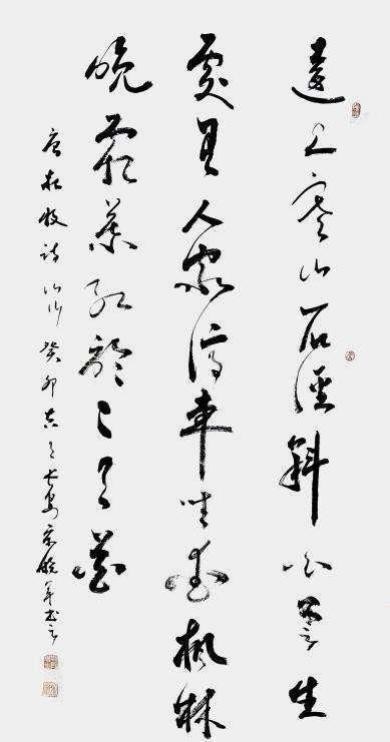 遠上寒山石徑斜白雲生
處有人家停車坐愛楓林
晚霜葉紅於二月花
唐杜牧詩山行癸卯長安軍書